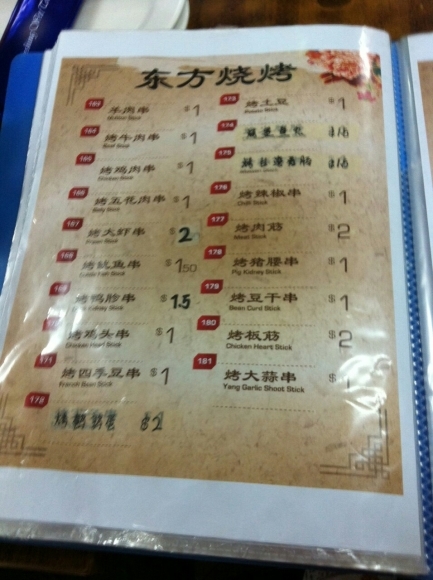 东方烧烤
163
羊肉串 $1
Mutton Stick
164
烤牛肉串 $1
Beef Stick
165
烤鸡肉串 $1
Chicken Stick
166
烤五花肉串 $1
Belly Stick
167
烤大虾串 $2
Prawn Stick
168
烤鱿鱼串 $1.50
烤鸭胗串 $1.5
Kidney Stick
烤鸡头串 $1
Chicken Head Stick
171
烤四季豆串 $1
French Bean Stick
172
烤 $2
173
烤土豆 $1
Potato Stick
174
175
176
烤辣椒串 $1
Chilli Stick
177
烤肉筋 $2
Meat Stick
178
烤猪腰串 $1
Pig Kidney Stick
179
烤豆干串 $1
Bean Curd Stick
180
烤板筋 $2
Chicken Heart Stick
181
烤大蒜串 $1
Yang Garlic Shoot Stick